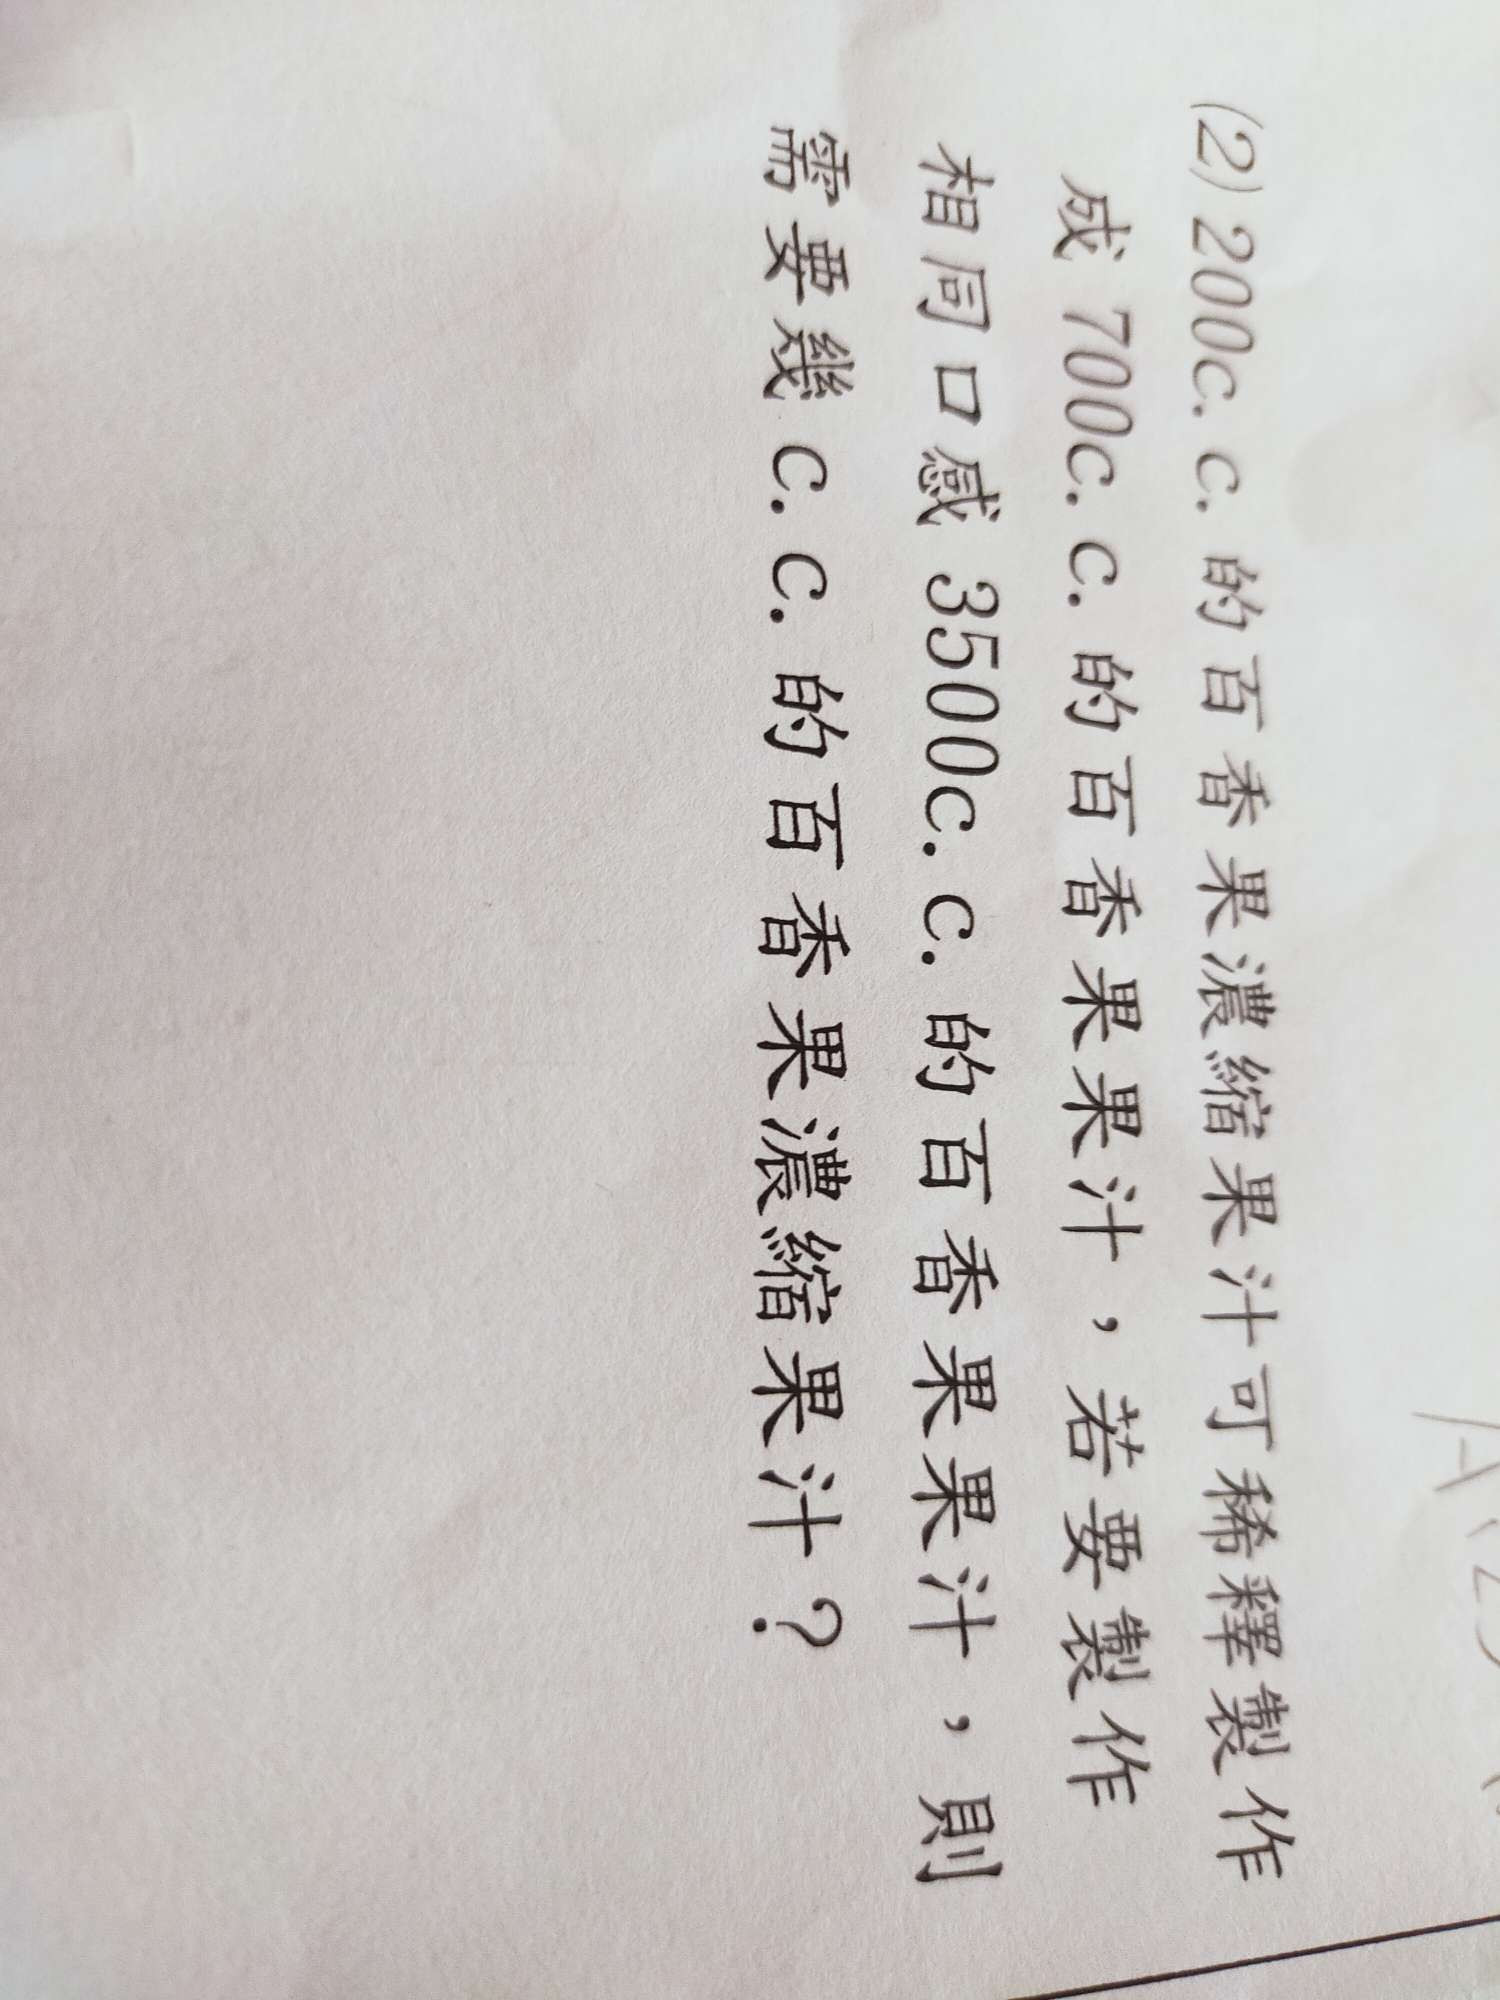 (2) 200c.c.的百香果濃縮果汁可稀釋製作
成 700c.c.的百香果果汁，若要製作
相同口感 3500c.c.的百香果果汁，則
需要幾 c.c.的百香果濃縮果汁？